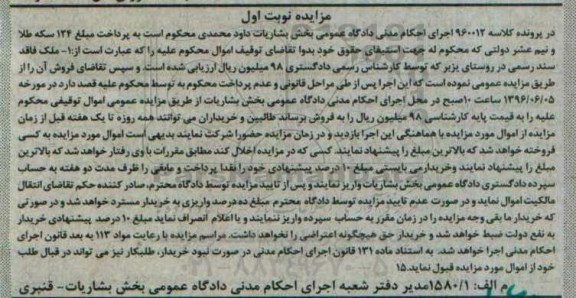 مزایده نوبت اول
در پرونده کلاسه ۹۶۰۰۱۲ اجرای احکام مدنی دادگاه عمومی بخش بشاریات داود محمدی محکوم است به پرداخت مبلغ ۱۲۴ سکه طلا
و نیم عشر دولتی که محکوم له جهت استیفای حقوق خود بدوا تقاضای توقیف اموال محکوم علیه را که عبارت است از:۱- ملک فاقد
سند رسمی در روستای یزبر که توسط کارشناس رسمی دادگستری ۹۸ میلیون ریال ارزیابی شده است. و سپس تقاضای فروش آن را از
طریق مزایده عمومی نموده است که این اجرا پس از طی مراحل قانونی و عدم پرداخت محکوم به توسط محکوم علیه قصد دارد در مورخه
۱۳۹۶/۰۶/۰۵ ساعت ۱۰صبح در محل اجرای احکام مدنی دادگاه عمومی بخش بشاریات از طریق مزایده عمومی اموال توقیفی محکوم
علیه را به قیمت پایه کارشناسی ۹۸ میلیون ریال را به فروش برساند طالبین و خریداران می توانند همه روزه تا یک هفته قبل از زمان
مزایده از اموال مورد مزایده با هماهنگی این اجرا بازدید و در زمان مزایده حضور/شرکت نمایند بدیهی است اموال مورد مزایده به کسی
فروخته خواهد شد که بالاترین مبلغ را پیشنهاد نمایند. کسی که در مزایده اخلال کند مطابق مقررات با وی رفتار خواهد شد که بالاترین
مبلغ را پیشنهاد نمایند وخریدارمی بایستی مبلغ ۱۰ درصد پیشنهادی خود را نقدا پرداخت و مابقی را ظرف مدت دو هفته به حساب
سپرده دادگستری دادگاه عمومی بخش بشاریات واریز نمایند و پس از تایید مزایده توسط دادگاه محترم، صادر کننده حکم تقاضای انتقال
مالکیت اموال نماید و در صورت عدم تایید مزایده توسط دادگاه محترم مبلغ ده درصد واریزی به خریدار مسترد خواهد شد و در صورتی
که خریدار ما بقی وجه مزایده را در زمان مقرر به حساب سپرده واریز ننمایند و یا اعلام انصراف نماید مبلغ ۱۰ درصد پیشنهادی خریدار
به نفع دولت ضبط خواهد شد و خریدار حق هیچگونه اعتراضی را نخواهد داشت. مراسم مزایده با رعایت مواد ۱۱۳ به بعد قانون اجرای
احکام مدنی اجرا خواهد شد. به استناد ماده ۱۳۱ قانون اجرای احکام مدنی در صورت نبود خریدار، طلبکار نیز می تواند در قبال طلب
خود از اموال مورد مزایده قبول نماید.۱۵
م الف: ۱۵۸۰/۱مدیر دفتر شعبه اجرای احکام مدنی دادگاه عمومی بخش بشاریات- قنبری